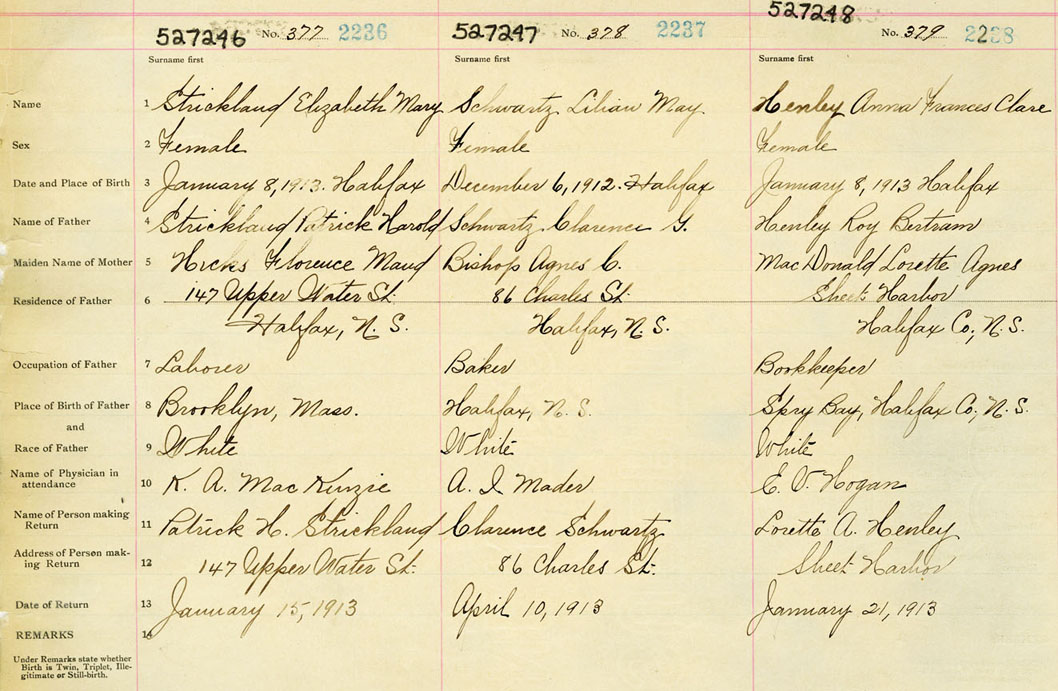 527248
527246 No. 377 2236 527247 No. 378 2237 No. 379 2238
Surname first Surname first Surname first
Name 1 Strickland Elizabeth Mary Schwartz Lilian May Henley Anna Frances Clare
Sex 2 Female Female Female
Date and Place of Birth 3 January 8, 1913. Halifax December 6, 1912. Halifax January 8, 1913 Halifax
Name of Father 4 Strickland Patrick Harold Schwartz Clarence G. Henley Roy Bertram
Maiden Name of Mother 5 Hicks Florence Maud Bishop Agnes C. MacDonald Lorette Agnes
Residence of Father 6 147 Upper Water St. 86 Charles St. Sheet Harbor
Halifax, N. S. Halifax, N. S. Halifax Co., N. S.
Occupation of Father 7 Laborer Baker Bookkeeper
Place of Birth of Father 8 Brooklyn, Mass. Halifax, N. S. Spry Bay, Halifax Co., N. S.
and
Race of Father 9 White White White
Name of Physician in
attendance 10 K. A. MacKinzie A. I. Mader E. V. Hogan
Name of Person making
Return 11 Patrick H. Strickland Clarence Schwartz Lorette A. Henley
Address of Person mak-
ing Return 12 147 Upper Water St. 86 Charles St. Sheet Harbor
Date of Return 13 January 15, 1913 April 10, 1913 January 21, 1913
REMARKS 14
Under Remarks state whether
Birth is Twin, Triplet, Ille-
gitimate or Still-birth.